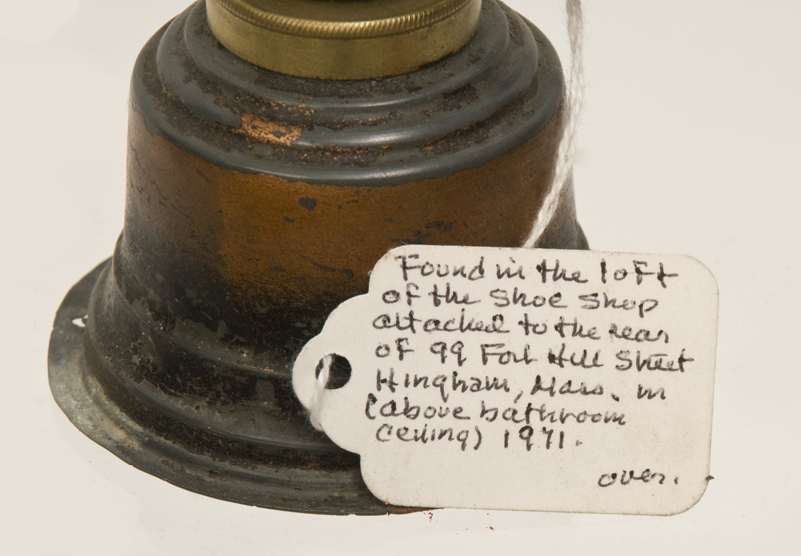 Found in the loft
of the Shoe Shop
attached to the rear
of 99 Fort Hill Street
Hingham, Mass. in
(above bathroom
ceiling) 1971.
over.